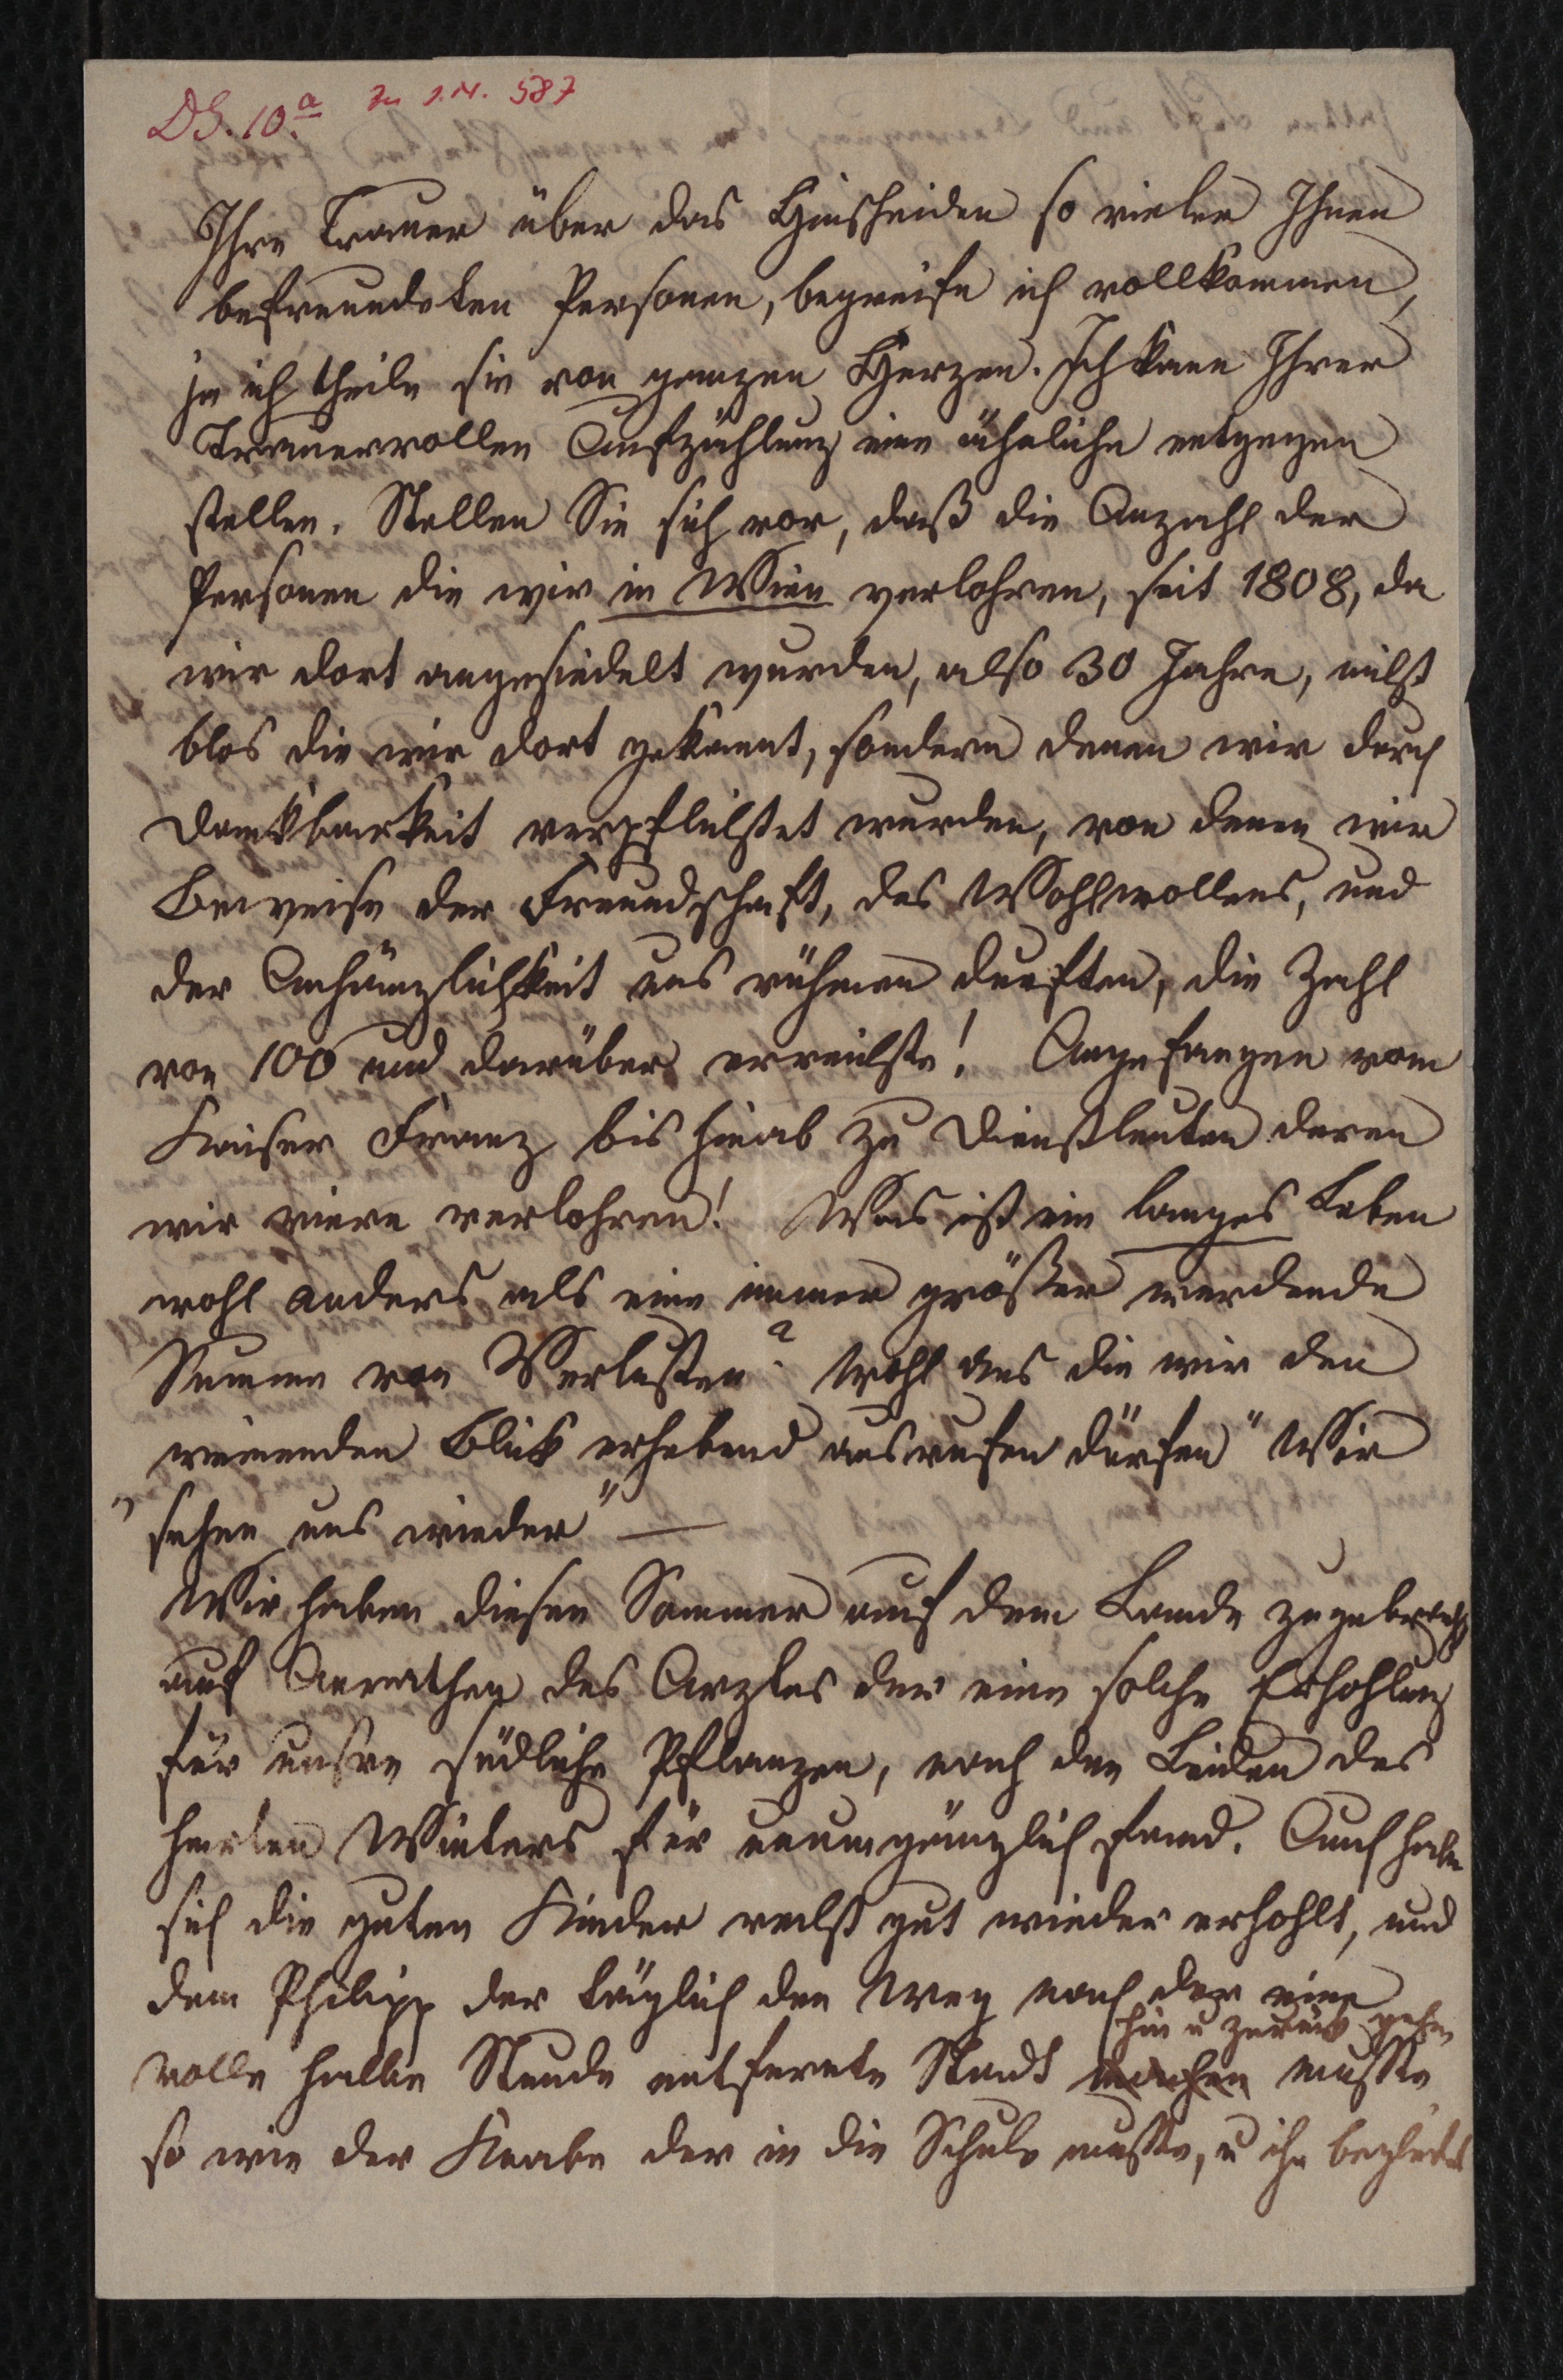 DS. 10.a zu J.N. 587
Ihre Trauer über das Hinscheiden so vieler Ihnen
befreundeten Personen, begreife ich vollkommen,
ja ich theile sie von ganzen Herzen. Ich kann Ihrer
Trauervollen Aufzählung eine ähnliche entgegen
stellen. Stellen Sie sich vor, daß die Anzahl der
Personen die wir in Wien verlohren, seit 1808, da
wir dort angesiedelt wurden, also 30 Jahre, nicht
blos die wir dort gekannt, sondern denen wir durch
Dankbarkeit verpflichtet wurden, von denen wir
Beweise der Freundschaft, des Wohlwollens, und
der Anhänglichkeit uns rühmen durften, die Zahl
von 100 und darüber erreichte! Angefangen vom
Kaiser Franz bis hinab zu Dienstleuten deren
wir viere verlohren! Was ist ein langes Leben
wohl anders als eine immer größer werdende
Summe von Verlusten? Wohl uns die wir den
weinenden Blick erhebend ausrufen dürfen "Wir
"sehen uns wieder" —
Wir haben diesen Sommer auf dem Lande zugebracht
auf Anrathen des Arztes der eine solche Erhohlung
für unsre südliche Pflanzen, nach den Leiden des
harten Winters für unumgänglich fand. Auch haben
sich die guten Kinder recht gut wieder erhohlt, und
dem Philipp der täglich den Weg nach der eine
hin u zurück gehen
volle halbe Stunde entfernte Stadt machen mußte
so wie der Knabe der in die Schule mußte, u ihn begleitet